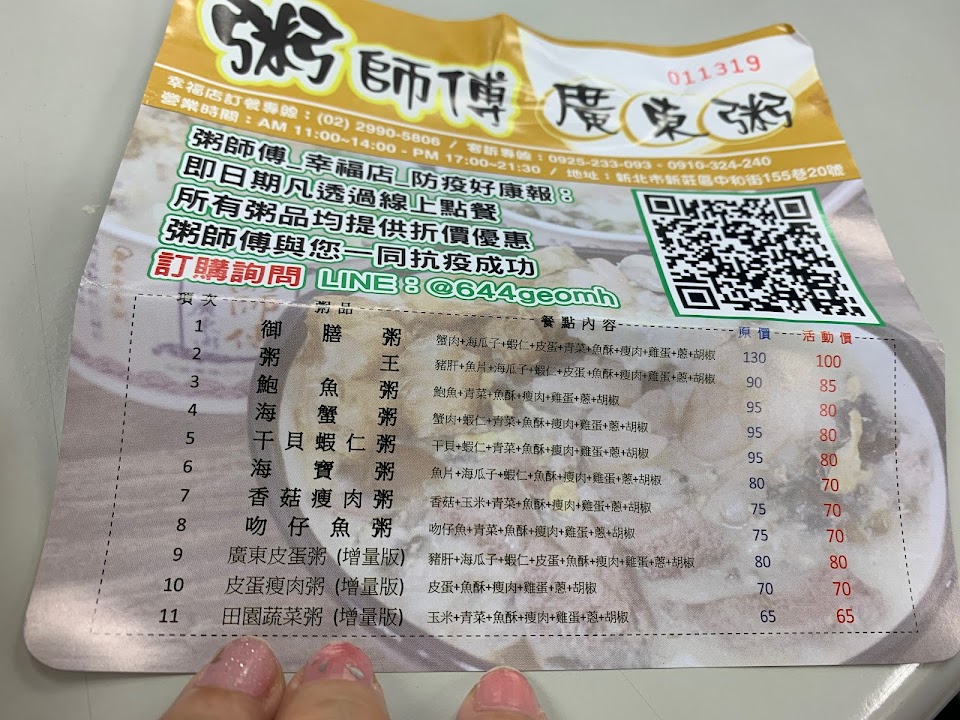 粥師傅 廣東粥
011319
幸福店訂餐專線:(02) 2990-5806 / 客訴專線:0925-233-093 - 0910-324-240
營業時間:AM 11:00~14:00 - PM 17:00~21:30 / 地址:新北市新莊區中和街155巷20號
粥師傅_幸福店_防疫好康報:
即日期凡透過線上點餐
所有粥品均提供折價優惠
粥師傅與您一同抗疫成功
訂購詢問 LINE:@644geomh
項次 粥品 餐點內容 原價 活動價
1 御膳粥 蟹肉+海瓜子+蝦仁+皮蛋+青菜+魚酥+瘦肉+雞蛋+蔥+胡椒 130 100
2 粥王 豬肝+魚片+海瓜子+蝦仁+皮蛋+魚酥+瘦肉+雞蛋+蔥+胡椒 90 85
3 鮑魚粥 鮑魚+青菜+魚酥+瘦肉+雞蛋+蔥+胡椒 95 80
4 海蟹粥 蟹肉+蝦仁+青菜+魚酥+瘦肉+雞蛋+蔥+胡椒 95 80
5 干貝蝦仁粥 干貝+蝦仁+青菜+魚酥+瘦肉+雞蛋+蔥+胡椒 95 80
6 海寶粥 魚片+海瓜子+蝦仁+魚酥+瘦肉+雞蛋+蔥+胡椒 80 70
7 香菇瘦肉粥 香菇+玉米+青菜+魚酥+瘦肉+雞蛋+蔥+胡椒 75 70
8 吻仔魚粥 吻仔魚+青菜+魚酥+瘦肉+雞蛋+蔥+胡椒 75 70
9 廣東皮蛋粥 (增量版) 豬肝+海瓜子+蝦仁+皮蛋+魚酥+瘦肉+雞蛋+蔥+胡椒 80 80
10 皮蛋瘦肉粥 (增量版) 皮蛋+魚酥+瘦肉+雞蛋+蔥+胡椒 70 70
11 田園蔬菜粥 (增量版) 玉米+青菜+魚酥+瘦肉+雞蛋+蔥+胡椒 65 65